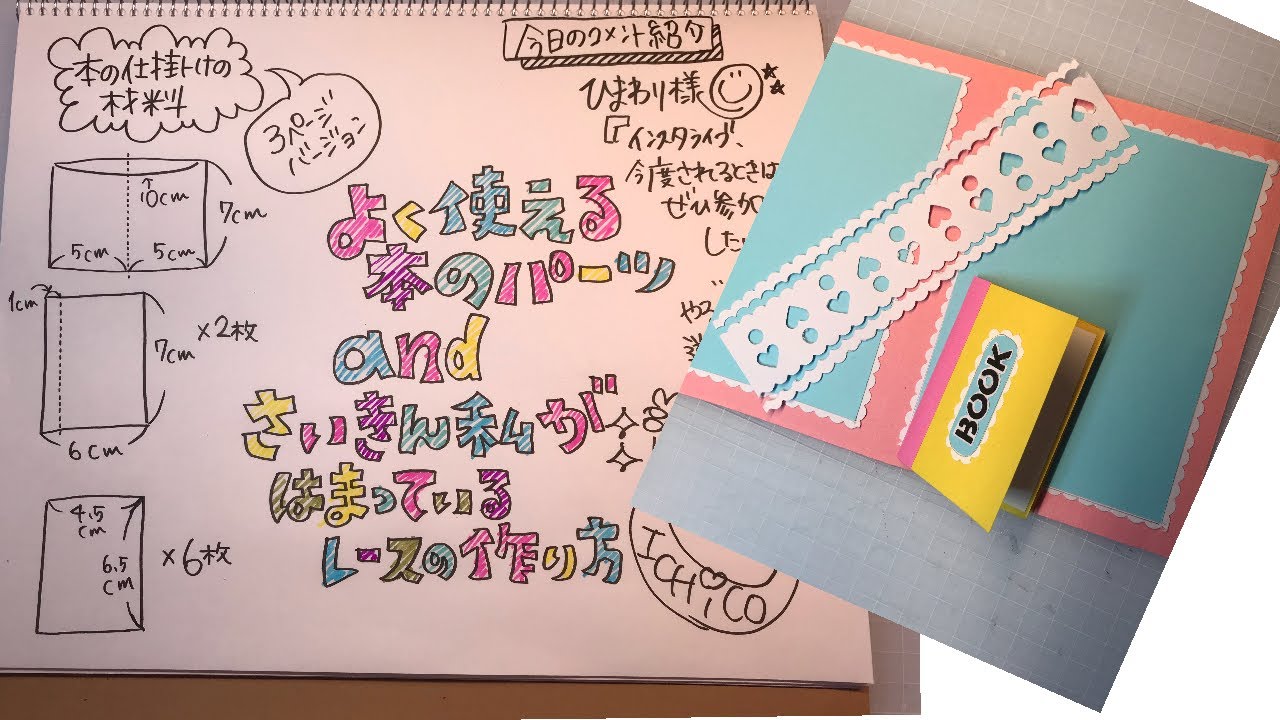 本の仕掛けの
材料
3ページ
バージョン
10cm
7cm
5cm 5cm
1cm
7cm
×2枚
6cm
4.5
cm
6.5
cm
×6枚
よく使える
本のパーツ
and
さいきん私が
はまっている
レースの作り方
今日のコメント紹介
ひまわり様
『インスタライブ、
今度されるときは
ぜひ参加
した
ICHICO
BOOK